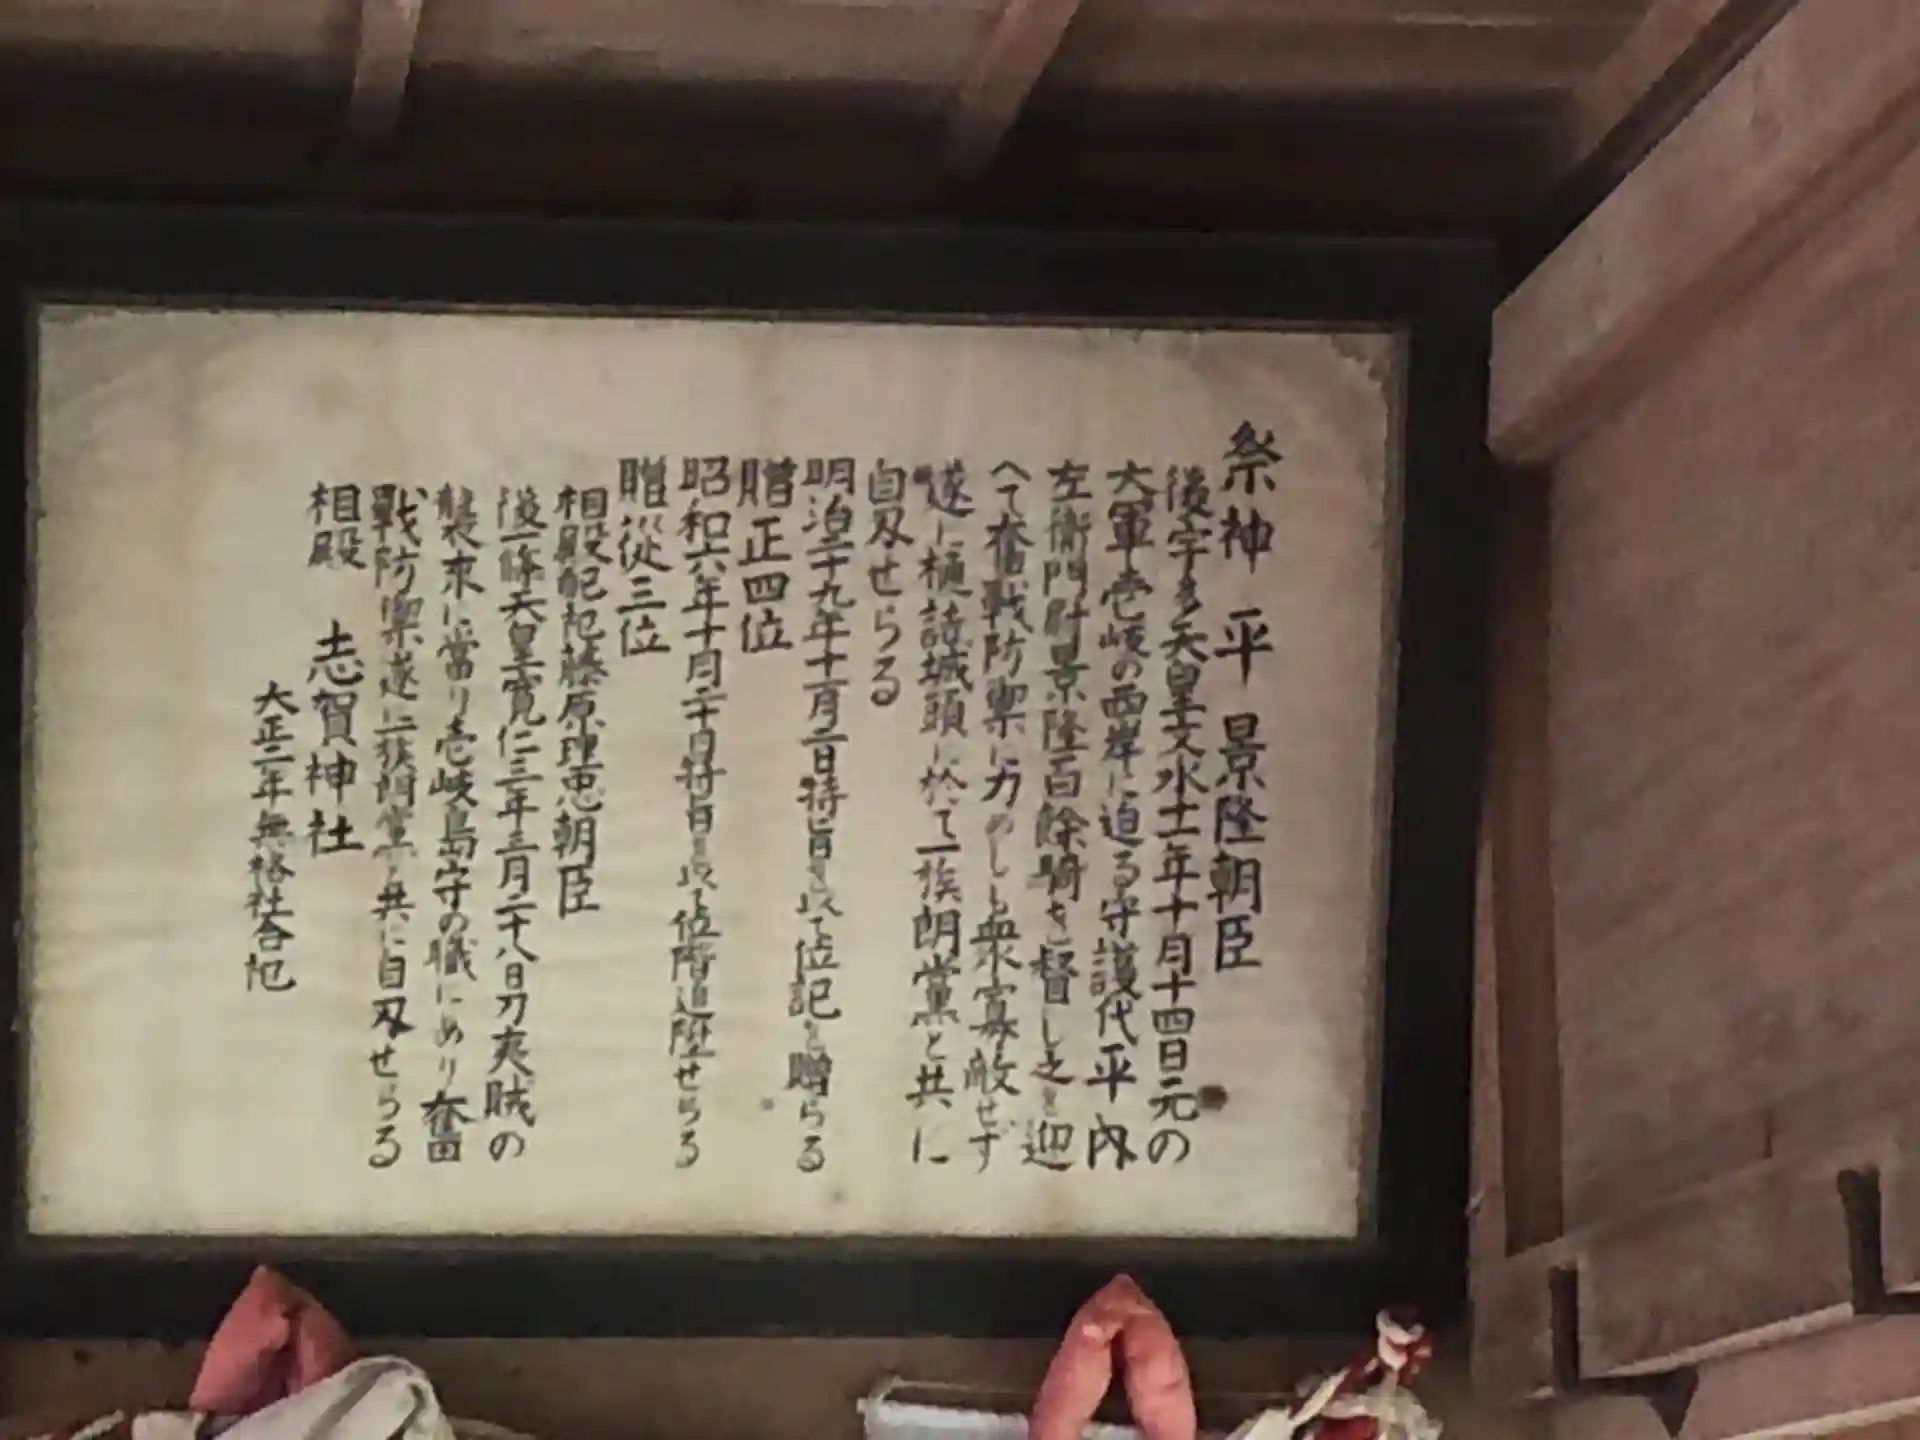 祭神 平 景隆朝臣
後宇多天皇文永十一年十月十四日元の
大軍壱岐の西岸に迫る守護代平内
左衛門尉景隆百餘騎を督し之を迎
へて奮戦防禦に力めしも衆寡敵せず
遂に樋詰城頭に於て一族朗党と共に
自刃せらる
明治二十九年十一月二日特旨を以て位記を贈らる
贈正四位
昭和六年十月二十日特旨を以て位階追陞せらる
贈従三位
相殿配祀藤原理忠朝臣
後一條天皇寛仁三年三月二十八日刀夷賊の
襲来に當り壱岐島守の職にあり奮
戦防禦遂に共に自刃せらる
相殿 志賀神社
大正二年無格社合祀